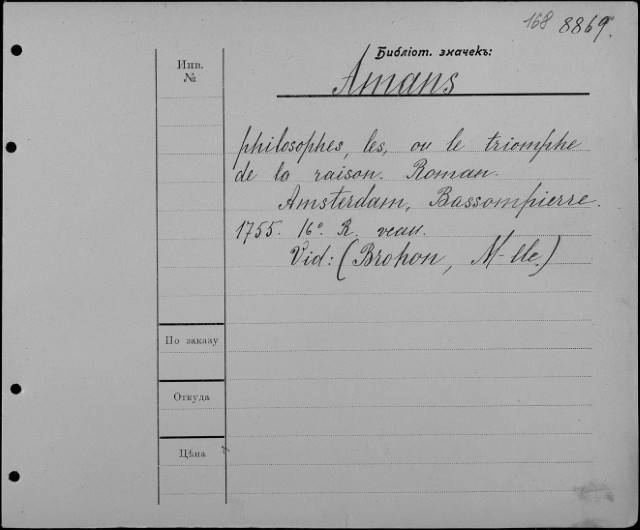 168 8869.
Библіот. значекъ:
Инв.
№
Amans
philosophes, les, ou le triomphe
de la raison. Roman.
Amsterdam, Bassompierre.
1755. 16° R. veau.
Vid: (Brohon, M-lle.)
По заказу
Откуда
Цѣна